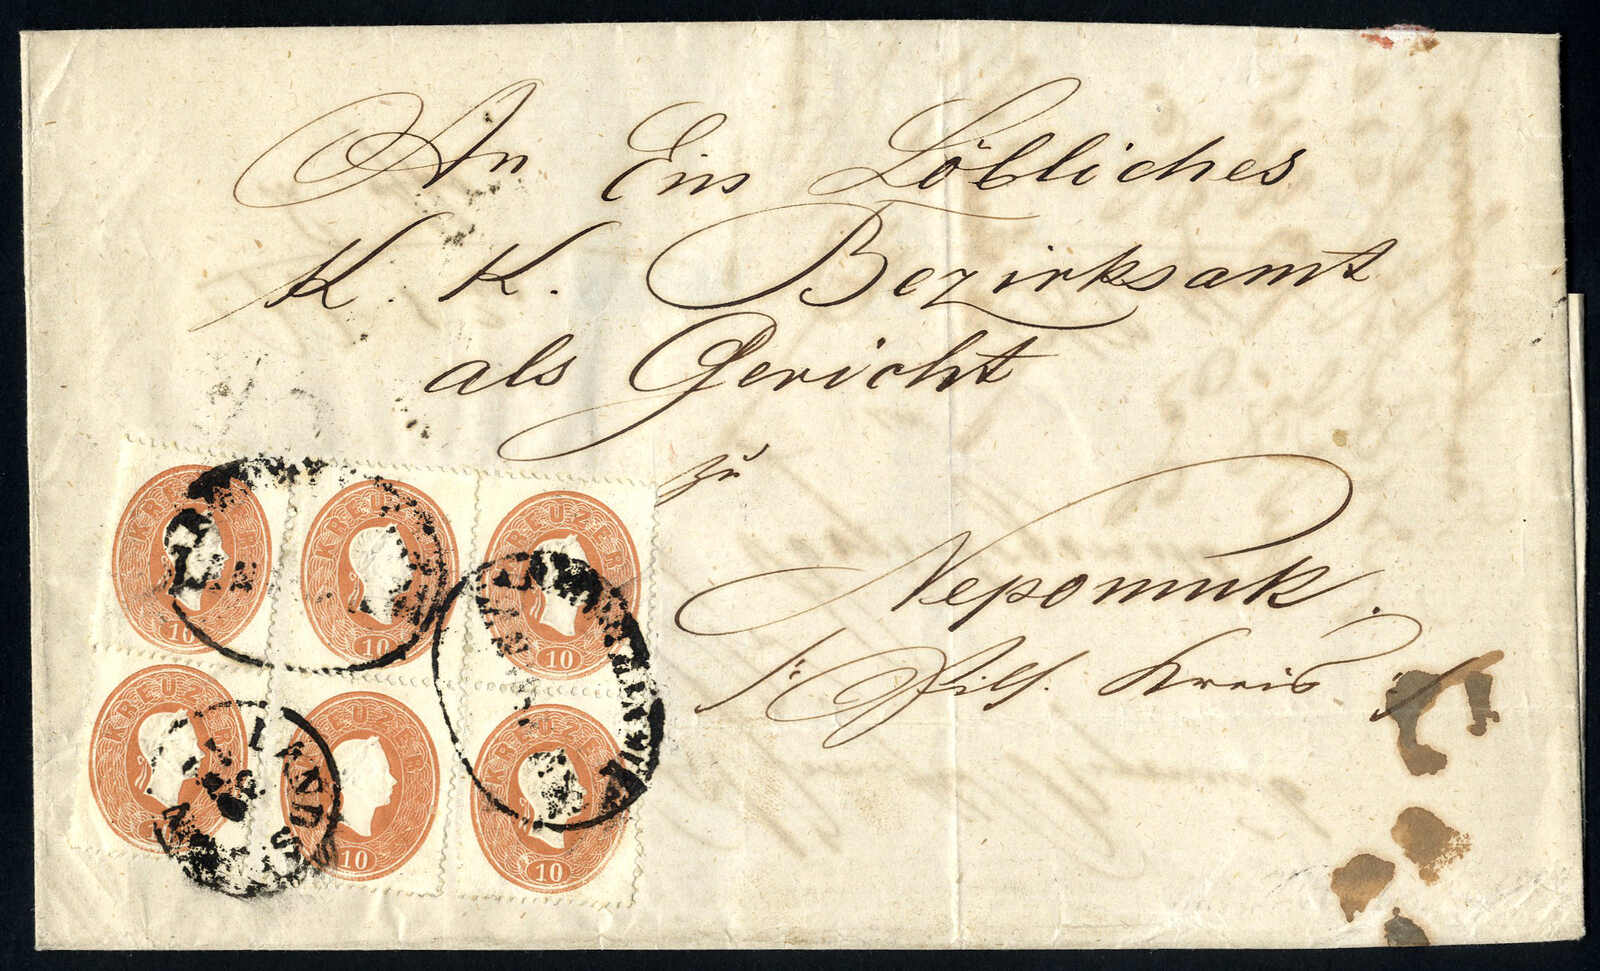 An Ein Löbliches
K. K. Bezirksamt
als Gericht
zu
Nepomuk.
/: Pils. Kreis /
KREUZER
10
KREUZER
10
KREUZER
10
KREUZER
KREUZER
10
KREUZER
10
LANDS